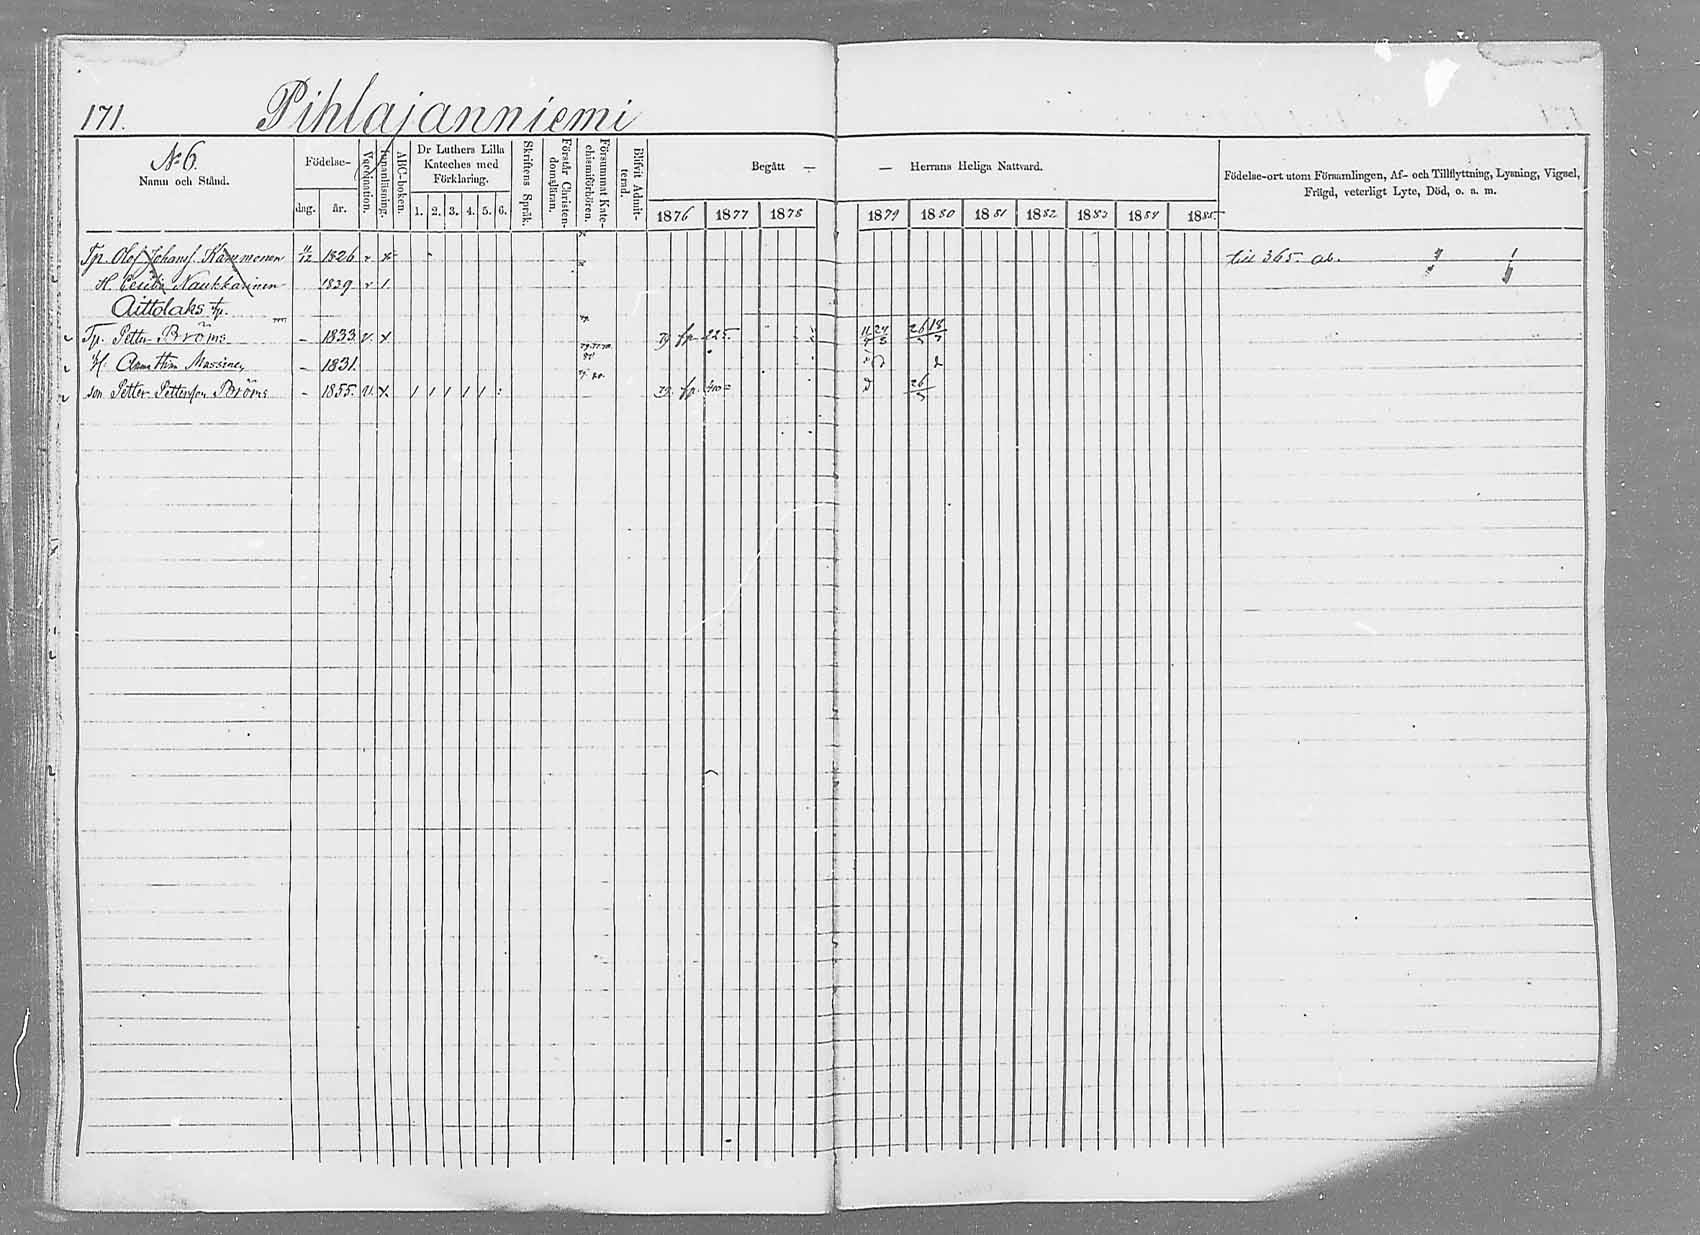 171. Pihlajanniemi
No 6.
Namn och Stånd.
Födelse-
dag. år.
Vaccination.
Innanläsning.
ABC-boken.
Dr Luthers Lilla
Kateches med
Förklaring.
1. 2. 3. 4. 5. 6.
Skriftens Språk.
Förstår Christen-
domsläran.
Försummat Kate-
chismiförhören.
Blifvit Admit-
terad.
Begått — — Herrans Heliga Nattvard.
1876 1877 1878 1879 1880 1881 1882 1883 1884 1885
Födelse-ort utom Församlingen, Af- och Tillflyttning, Lysning, Vigsel,
Frägd, veterligt Lyte, Död, o. s. m.
Tp. Olof Johans. 1826. v x till 365.
H. Naukkarinen 1829 v 1.
Aittolaks Tp.
Tp. Petter Bröms - 1833. v. x 225. 26/5 18/7
H. Anna - 1831.
son Petter Petterson Bröms - 1855. v. x 1 1 1 1 1 26/5